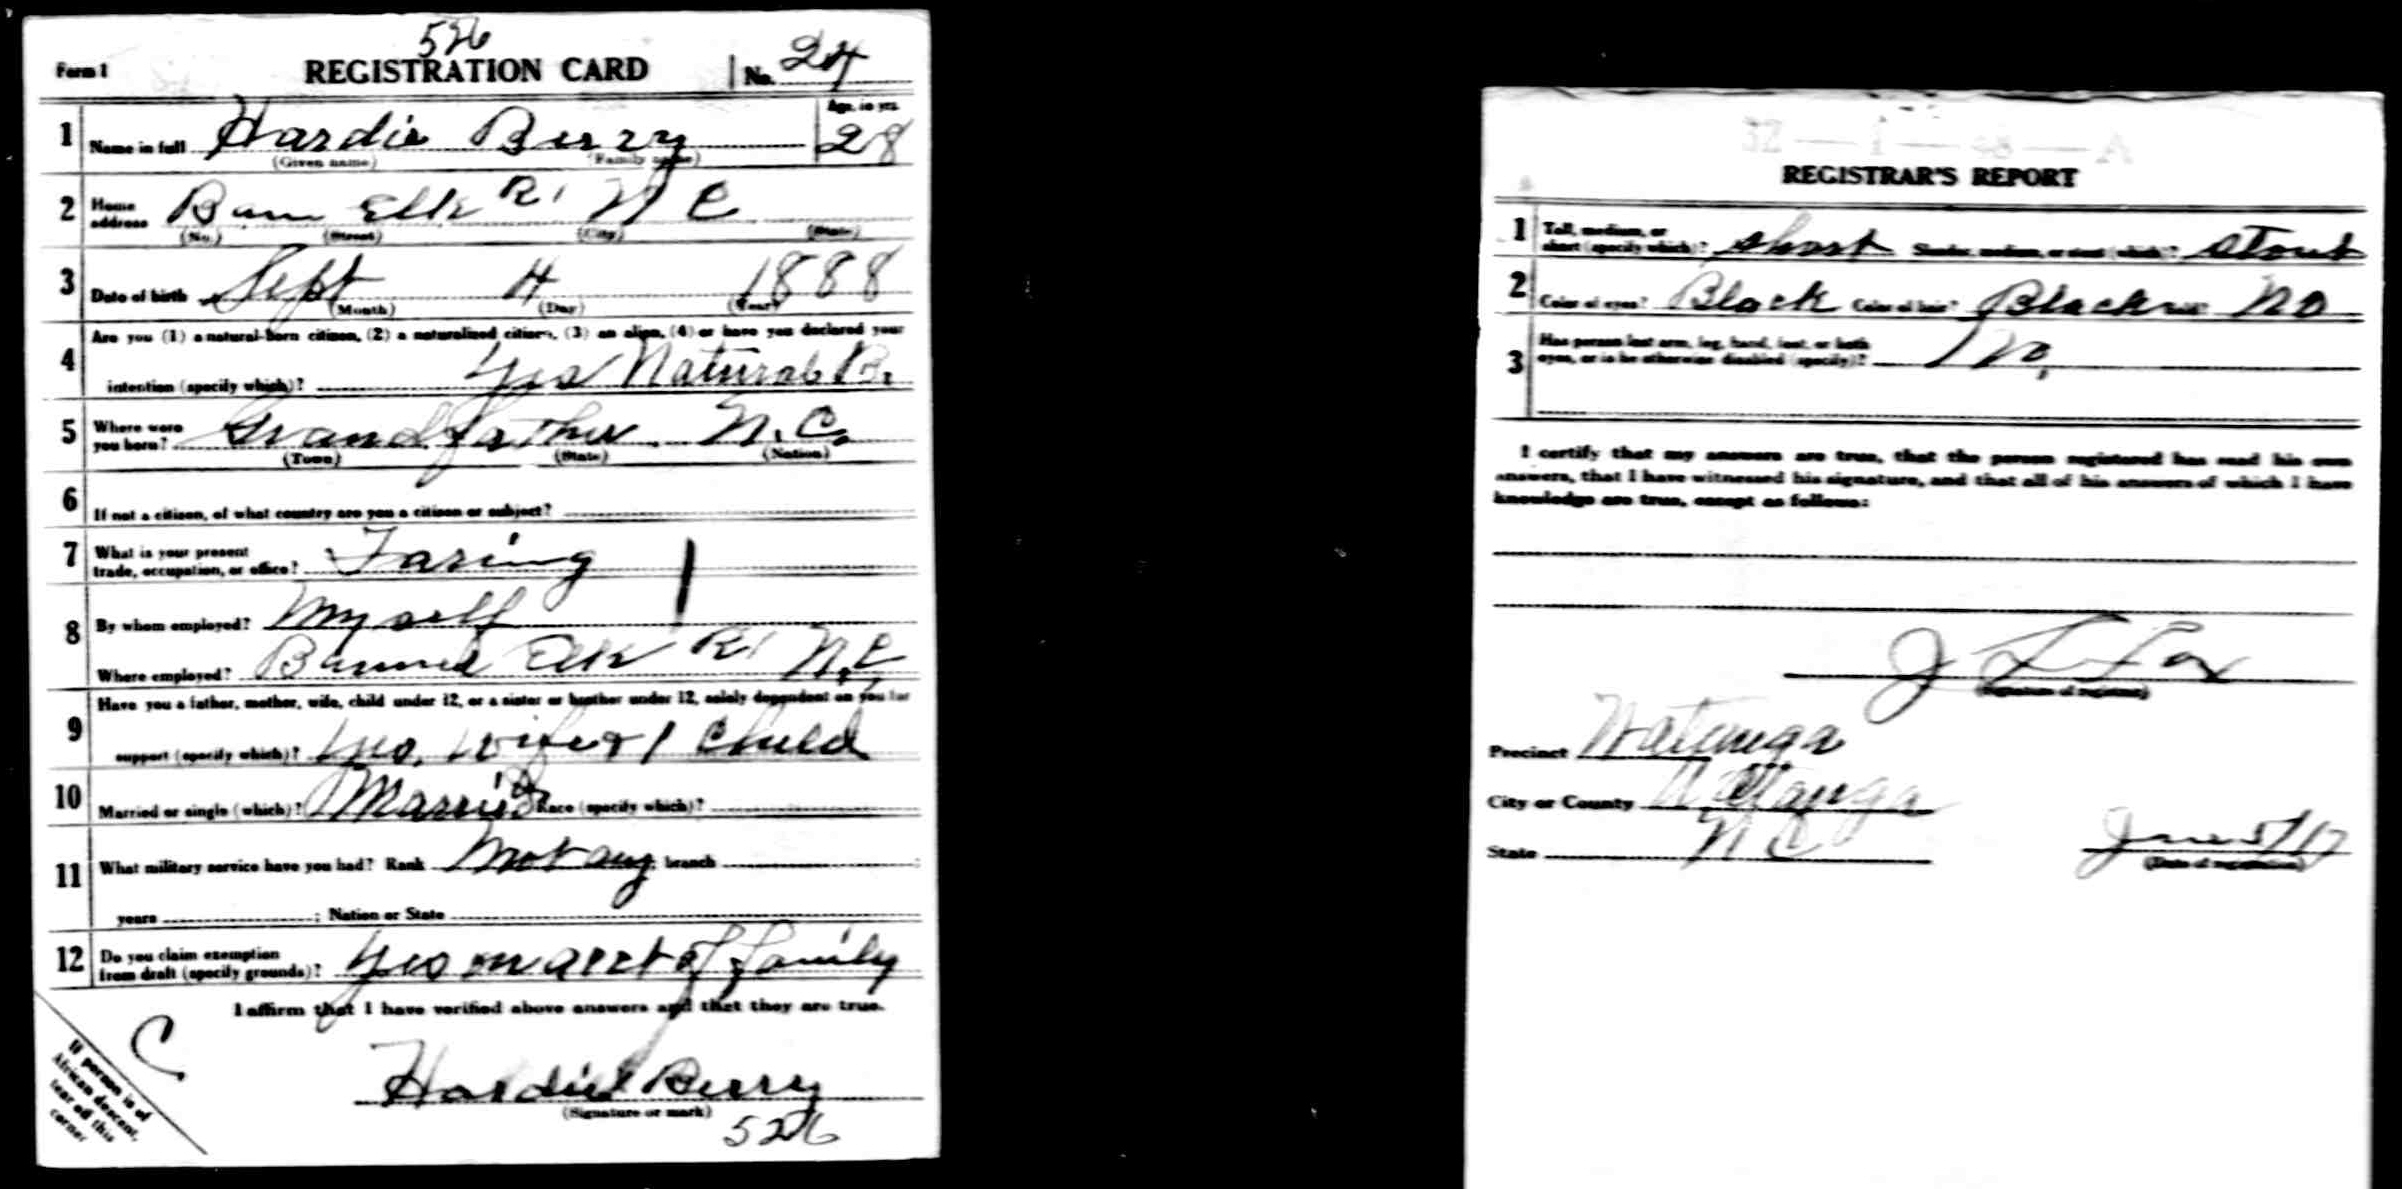 526
Form 1 REGISTRATION CARD No. 24
1 Name in full Hardie Berry Age, in yrs. 28
(Given name) (Family name)
2 Home address Bann Elk R1 N C
(No.) (Street) (City) (State)
3 Date of birth Sept 4 1888
(Month) (Day) (Year)
4 Are you (1) a natural-born citizen, (2) a naturalized citizen, (3) an alien, (4) or have you declared your
intention (specify which)? Yes Natural B.
5 Where were you born? Grandfather N.C.
(Town) (State) (Nation)
6 If not a citizen, of what country are you a citizen or subject?
7 What is your present trade, occupation, or office? Faring
8 By whom employed? Myself
Where employed? Banner Elk R1 N.C
9 Have you a father, mother, wife, child under 12, or a sister or brother under 12, solely dependent on you for
support (specify which)? Yes, wife & 1 Child
10 Married or single (which)? Married Race (specify which)?
11 What military service have you had? Rank Not any branch ;
years ; Nation or State
12 Do you claim exemption from draft (specify grounds)? Yes on acct of family
I affirm that I have verified above answers and that they are true.
C
If person is of
African descent,
tear off this
corner
Hardie Berry
(Signature or mark)
526
32 — 1 — 48 — A
REGISTRAR'S REPORT
1 Tall, medium, or short (specify which)? short Slender, medium, or stout (which)? stout
2 Color of eyes? Black Color of hair? Black No
3 Has person lost arm, leg, hand, foot, or both
eyes, or is he otherwise disabled (specify)? No,
I certify that my answers are true, that the person registered has read his own
answers, that I have witnessed his signature, and that all of his answers of which I have
knowledge are true, except as follows:
J L Fox
(Signature of registrar)
Precinct Watauga
City or County Watauga
State N C June 5/17
(Date of registration)